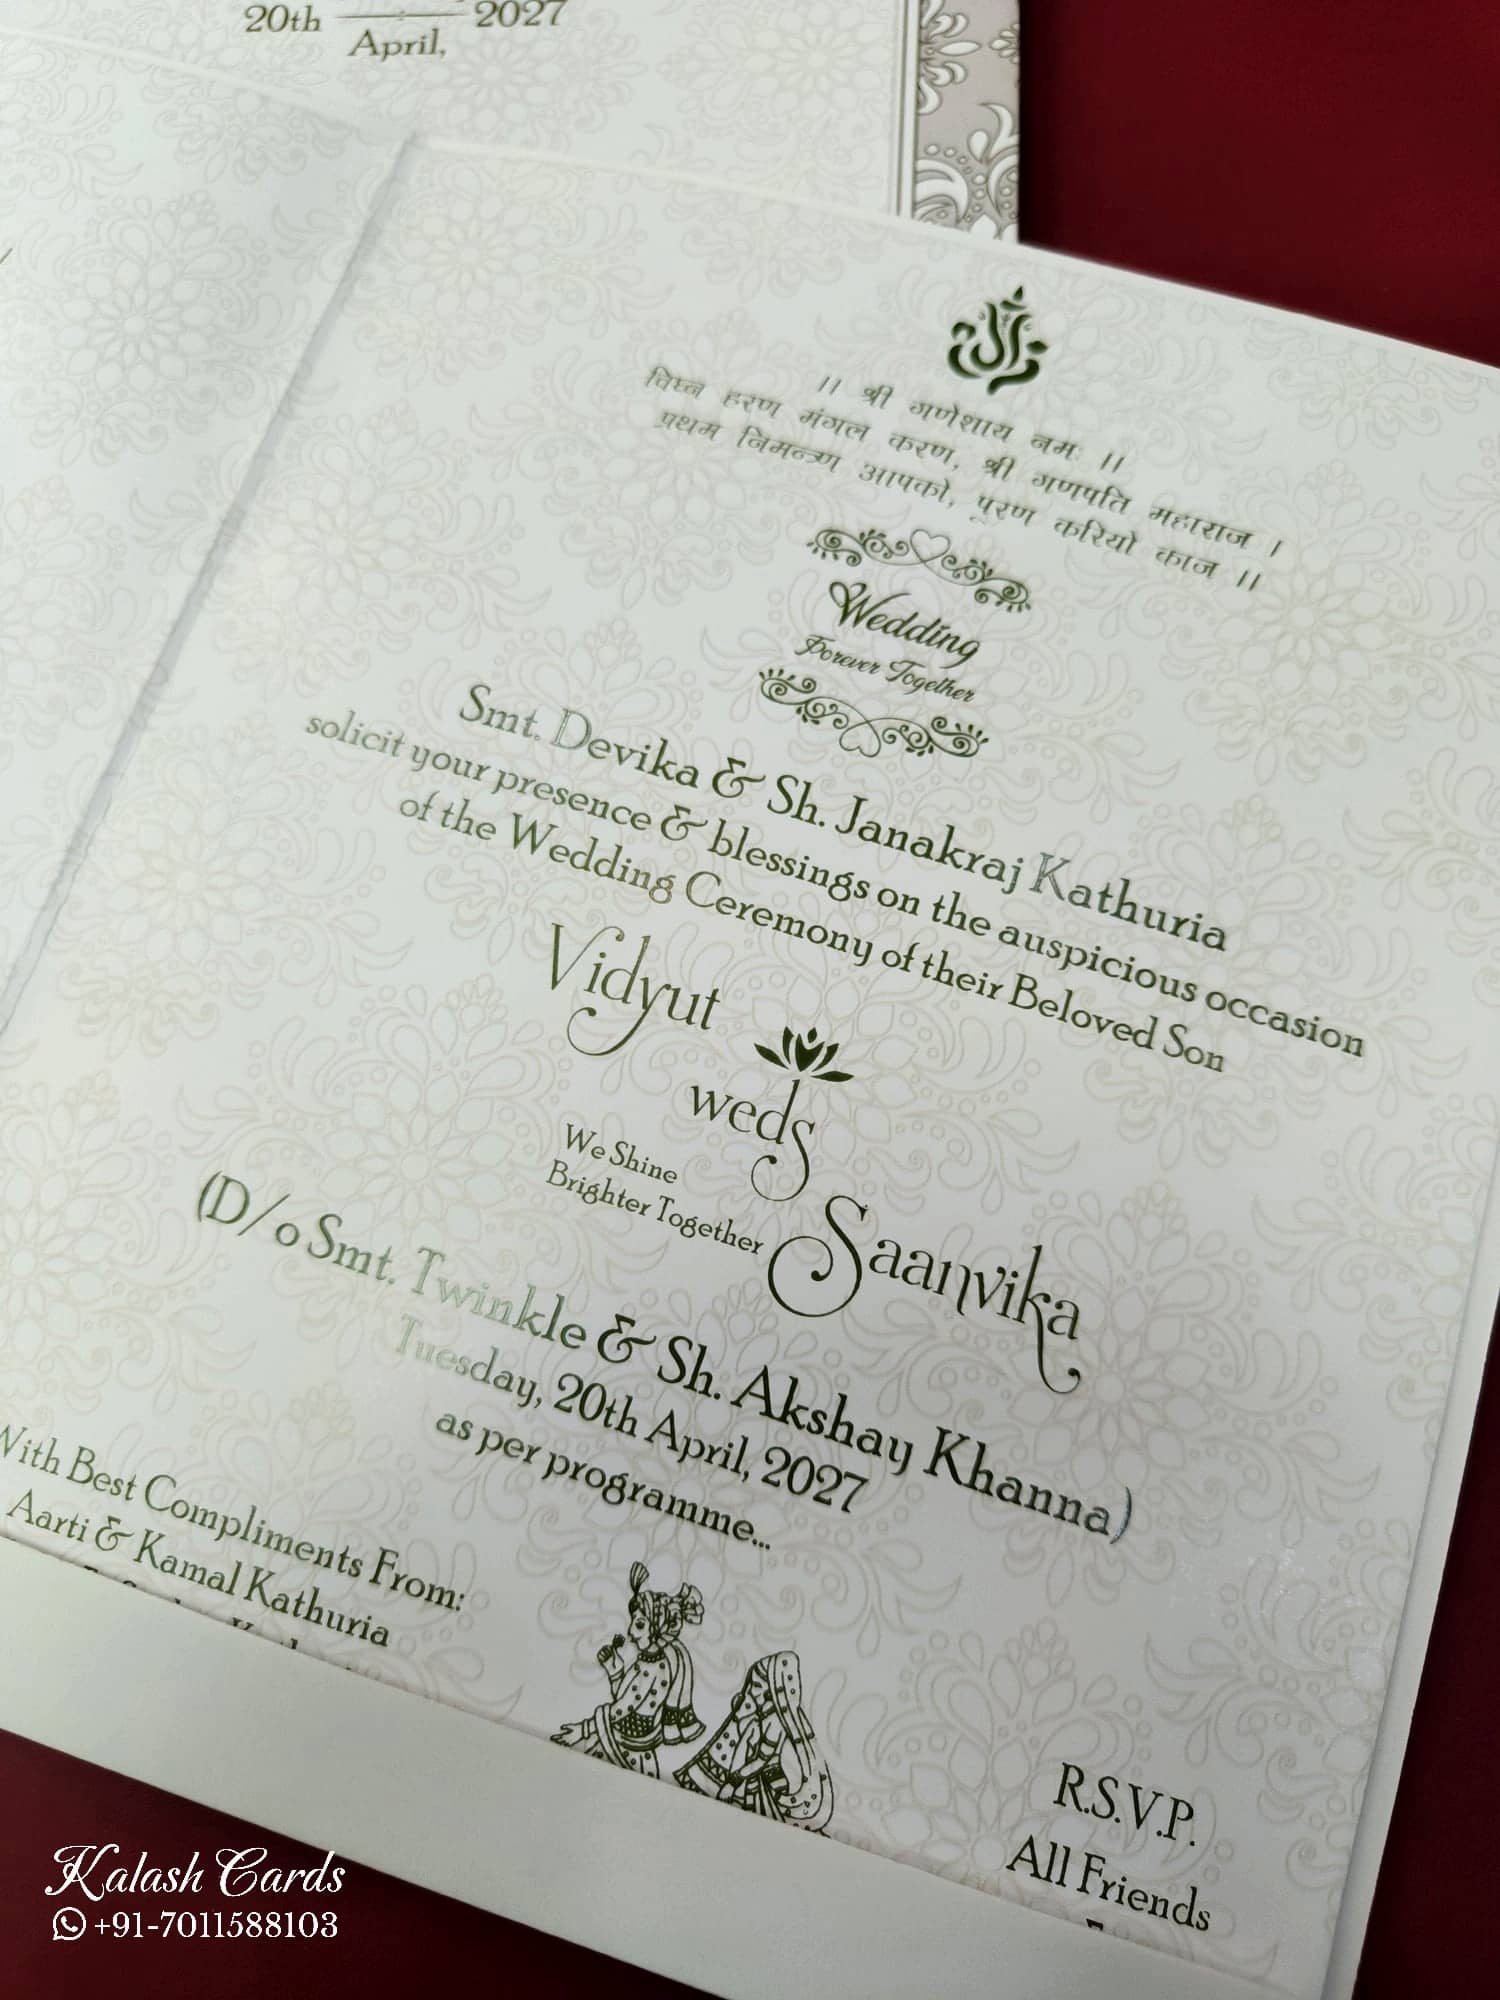 20th
April,
2027
।। श्री गणेशाय नमः ।।
विघ्न हरण मंगल करण, श्री गणपति महाराज ।
प्रथम निमन्त्रण आपको, पूरण करियो काज ।।
Wedding
Forever Together
Smt. Devika & Sh. Janakraj Kathuria
solicit your presence & blessings on the auspicious occasion
of the Wedding Ceremony of their Beloved Son
Vidyut
weds
We Shine
Brighter Together
Saanvika
(D/o Smt. Twinkle & Sh. Akshay Khanna)
Tuesday, 20th April, 2027
as per programme...
With Best Compliments From:
Aarti & Kamal Kathuria
R.S.V.P.
All Friends
Kalash Cards
+91-7011588103